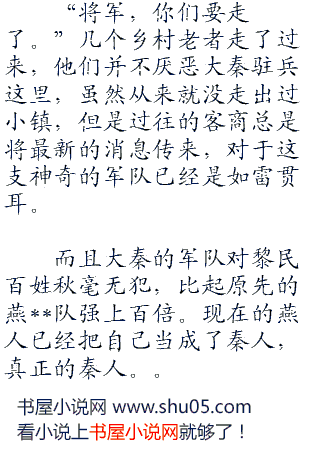 “将军，你们要走
了。”几个乡村老者走了过
来，他们并不厌恶大秦驻兵
这里，虽然从来就没走出过
小镇，但是过往的客商总是
将最新的消息传来，对于这
支神奇的军队已经是如雷贯
耳。
而且大秦的军队对黎民
百姓秋毫无犯，比起原先的
燕**队强上百倍。现在的燕
人已经把自己当成了秦人，
真正的秦人。。
书屋小说网 www.shu05.com
看小说上书屋小说网就够了！